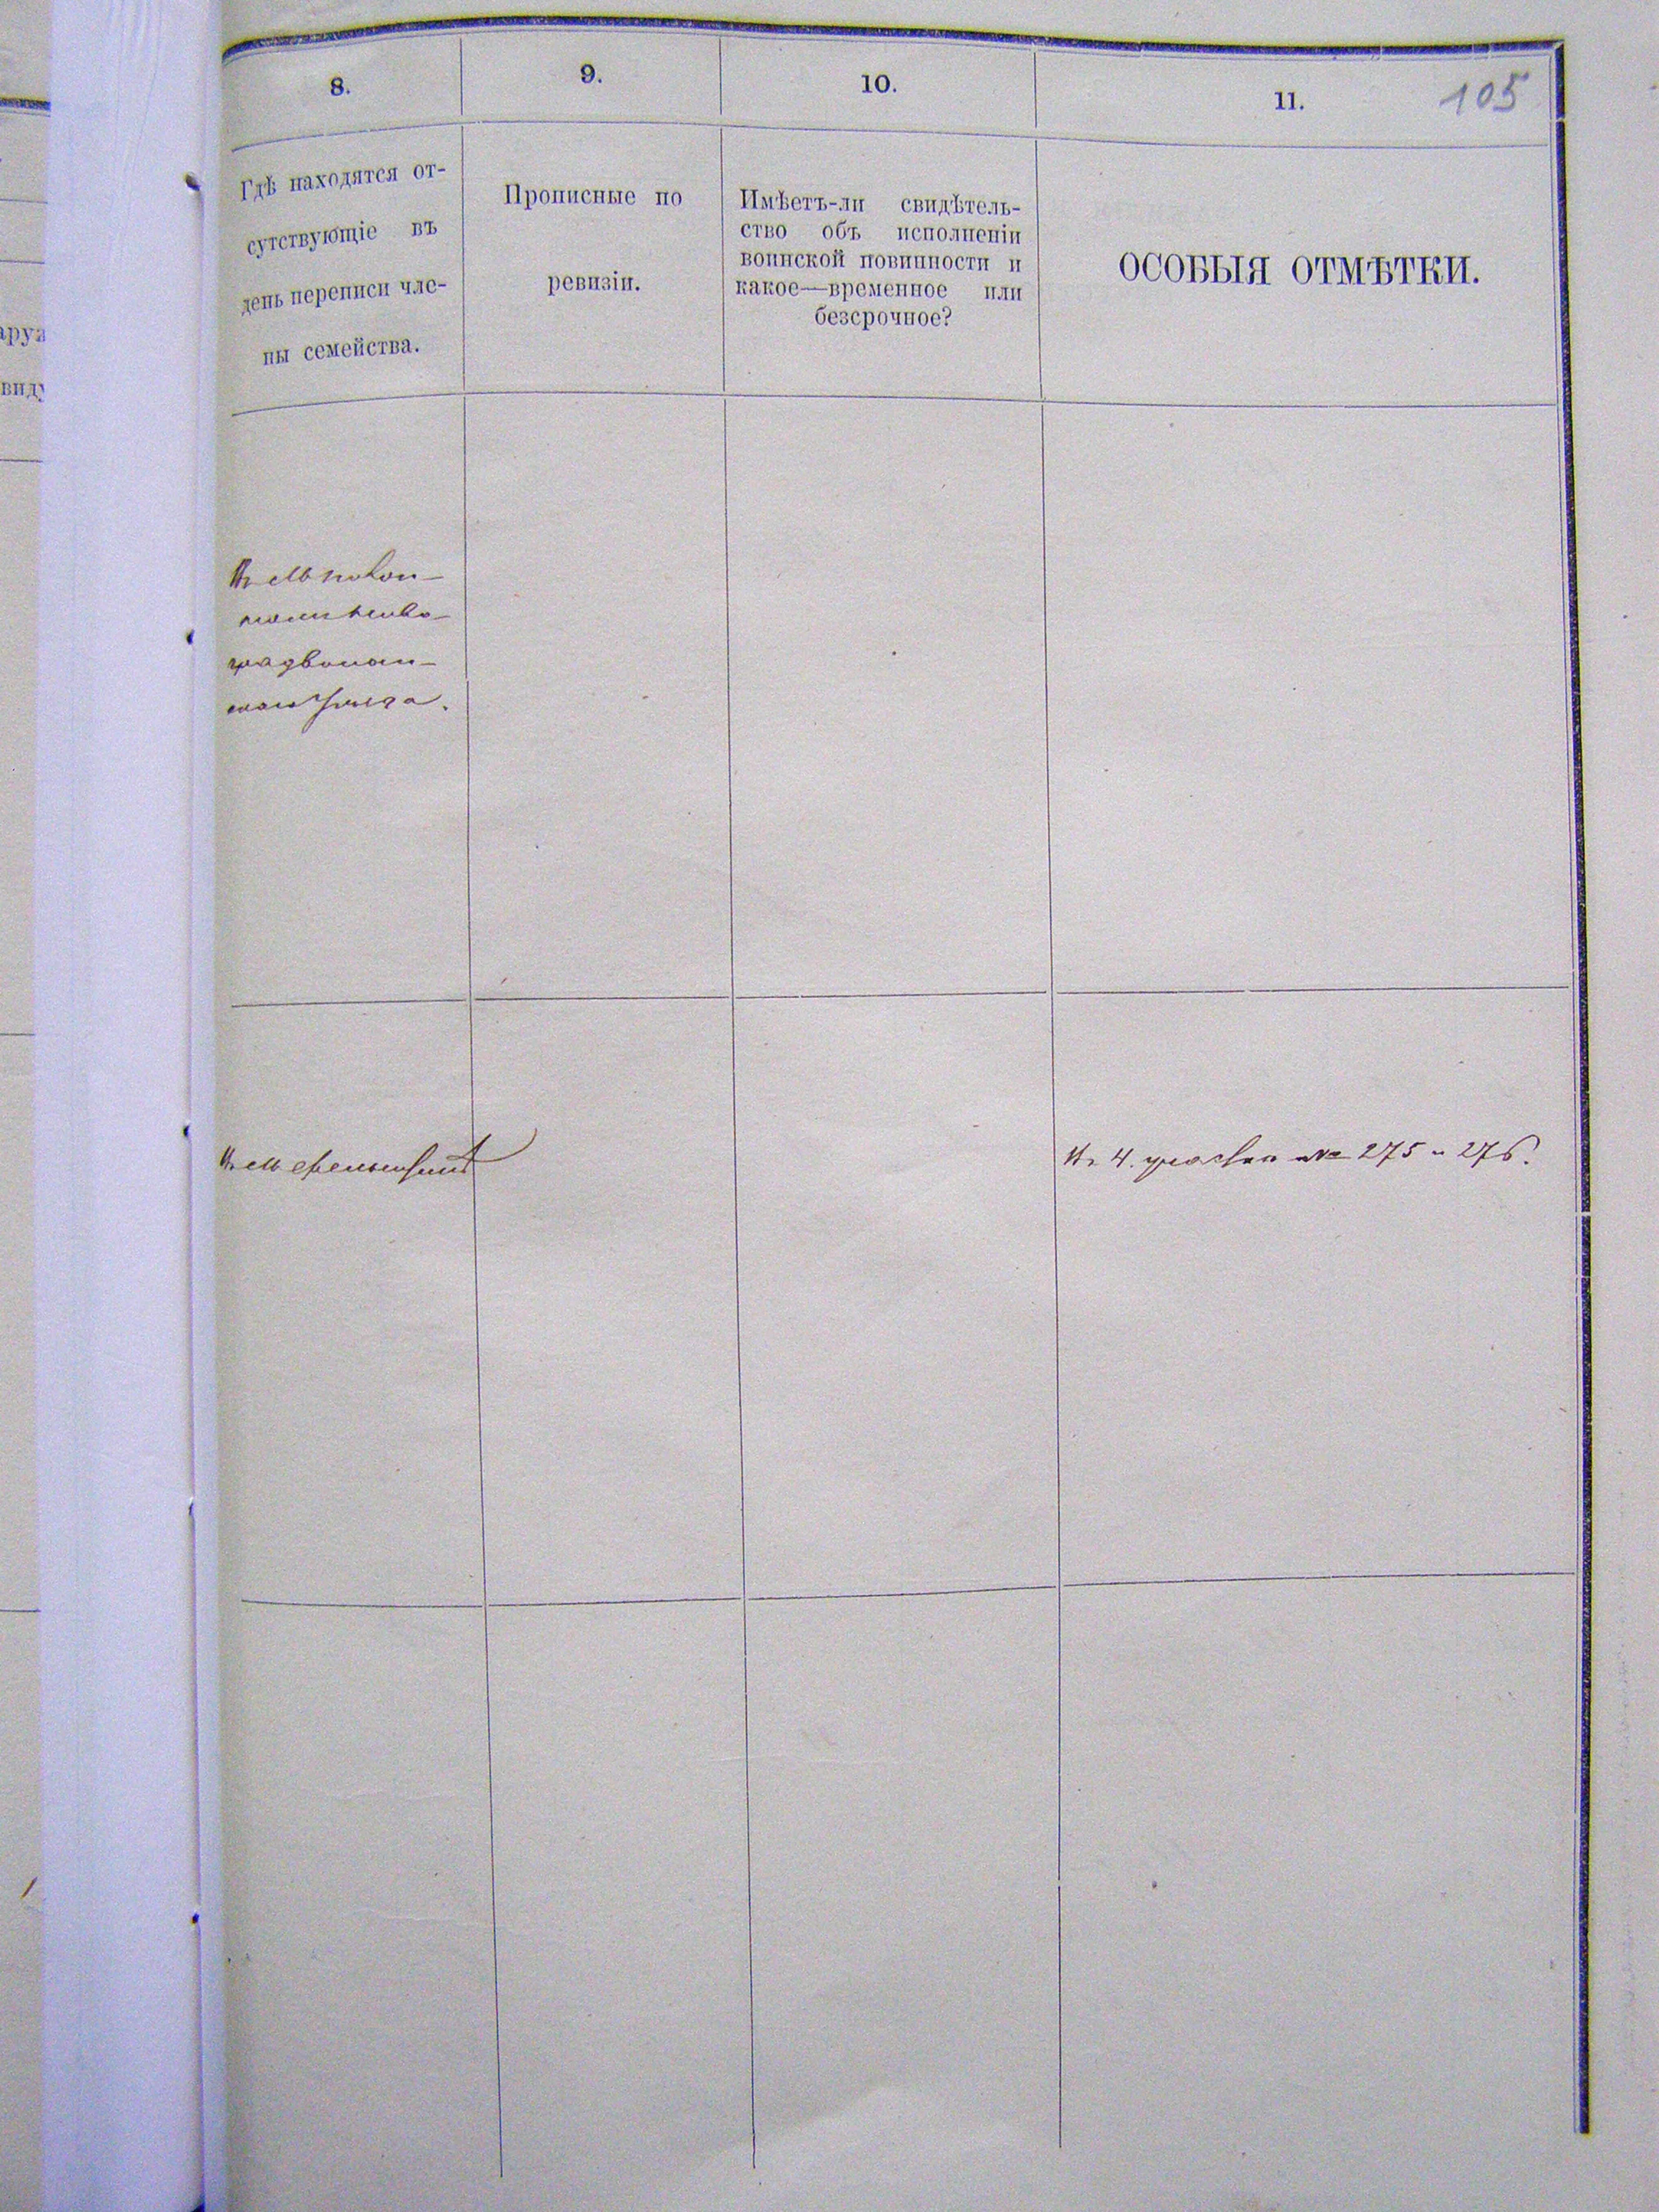 8.
9.
10.
11.
105
Гдѣ находятся от-
сутствующіе въ
день переписи чле-
ны семейства.
Прописные по
ревизіи.
Имѣетъ-ли свидѣтель-
ство объ исполненіи
воинской повинности и
какое—временное или
безсрочное?
ОСОБЫЯ ОТМѢТКИ.
аруж
виду
Въ
Въ 4. участкѣ № 275 и 276.